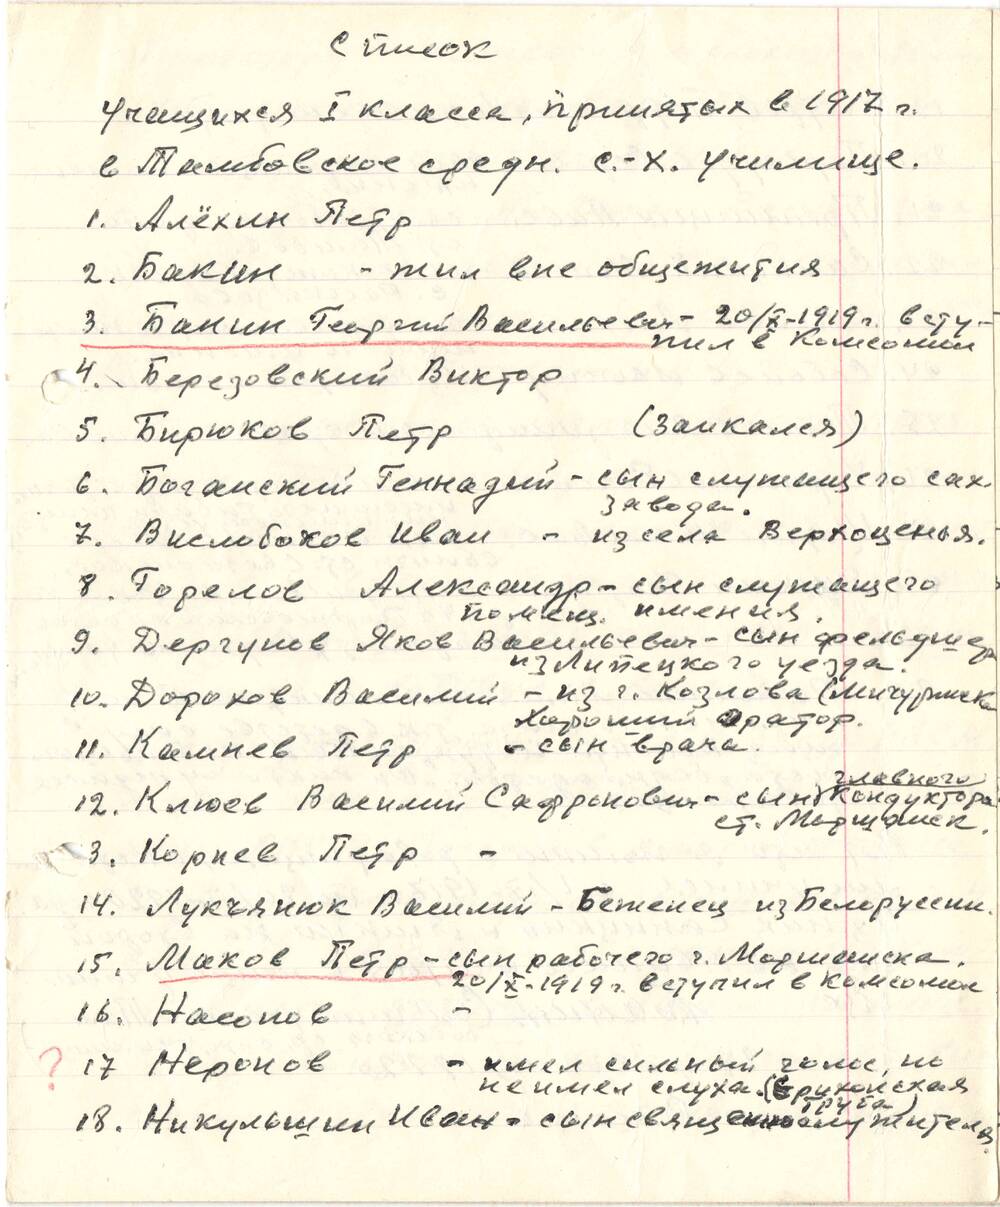 Список
Учащихся I класса, принятых в 1917 г.
в Тамбовское средн. с.-х. училище.
1. Алёхин Петр
2. Бакин - жил вне общежития
3. Банин Георгий Васильевич - 20/X-1919 г. всту-
пил в Комсомол
4. Березовский Виктор
5. Бирюков Петр (Заикался)
6. Боганский Геннадий - сын служащего сах.
завода.
7. Вислобоков Иван - из села Верхоценья.
8. Горелов Александр - сын служащего
помещ. имения.
9. Дергунов Яков Васильевич - сын фельдшера
из Липецкого уезда.
10. Дорохов Василий - из г. Козлова (Мичуринска
хороший оратор.
11. Камнев Петр - сын врача.
12. Клюев Василий Сафронович - сын главного кондуктора
ст. Моршанск.
3. Корнев Петр -
14. Лукъянюк Василий - Беженец из Белоруссии.
15. Маков Петр - сын рабочего г. Моршанска.
20/X-1919 г. вступил в Комсомол
16. Насонов -
? 17 Неронов - имел сильный голос, но
не имел слуха. (Ерихонская
труба)
18. Никульшин Иван - сын священнослужителя.